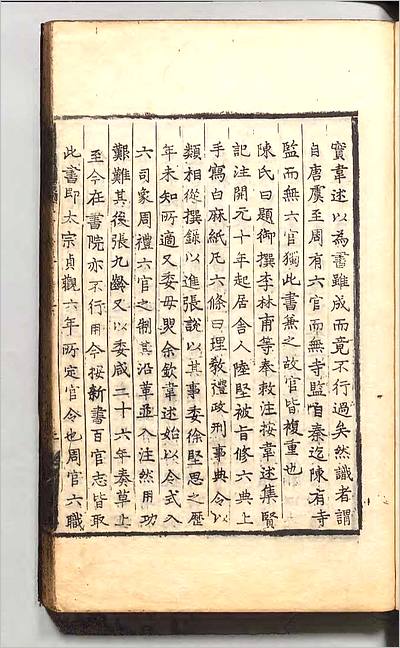 實韋述以為書雖成而竟不行過矣然識者謂
自唐虞至周有六官而無寺監自秦迄陳有寺
監而無六官獨此書兼之故官皆複重也
陳氏曰題御撰李林甫等奉敕注按韋述集賢
記注開元十年起居舍人陸堅被旨修六典上
手寫白麻紙凡六條曰理敎禮政刑事典令以
類相從撰錄以進張說以其事委徐堅思之歷
年未知所適又委毋煚余欽韋述始以令式入
六司象周禮六官之制其沿革並入注然用功
艱難其後張九齡又以委咸二十六年奏草上
至今在書院亦不行用今按新書百官志皆取
此書即太宗貞觀六年所定官令也周官六職